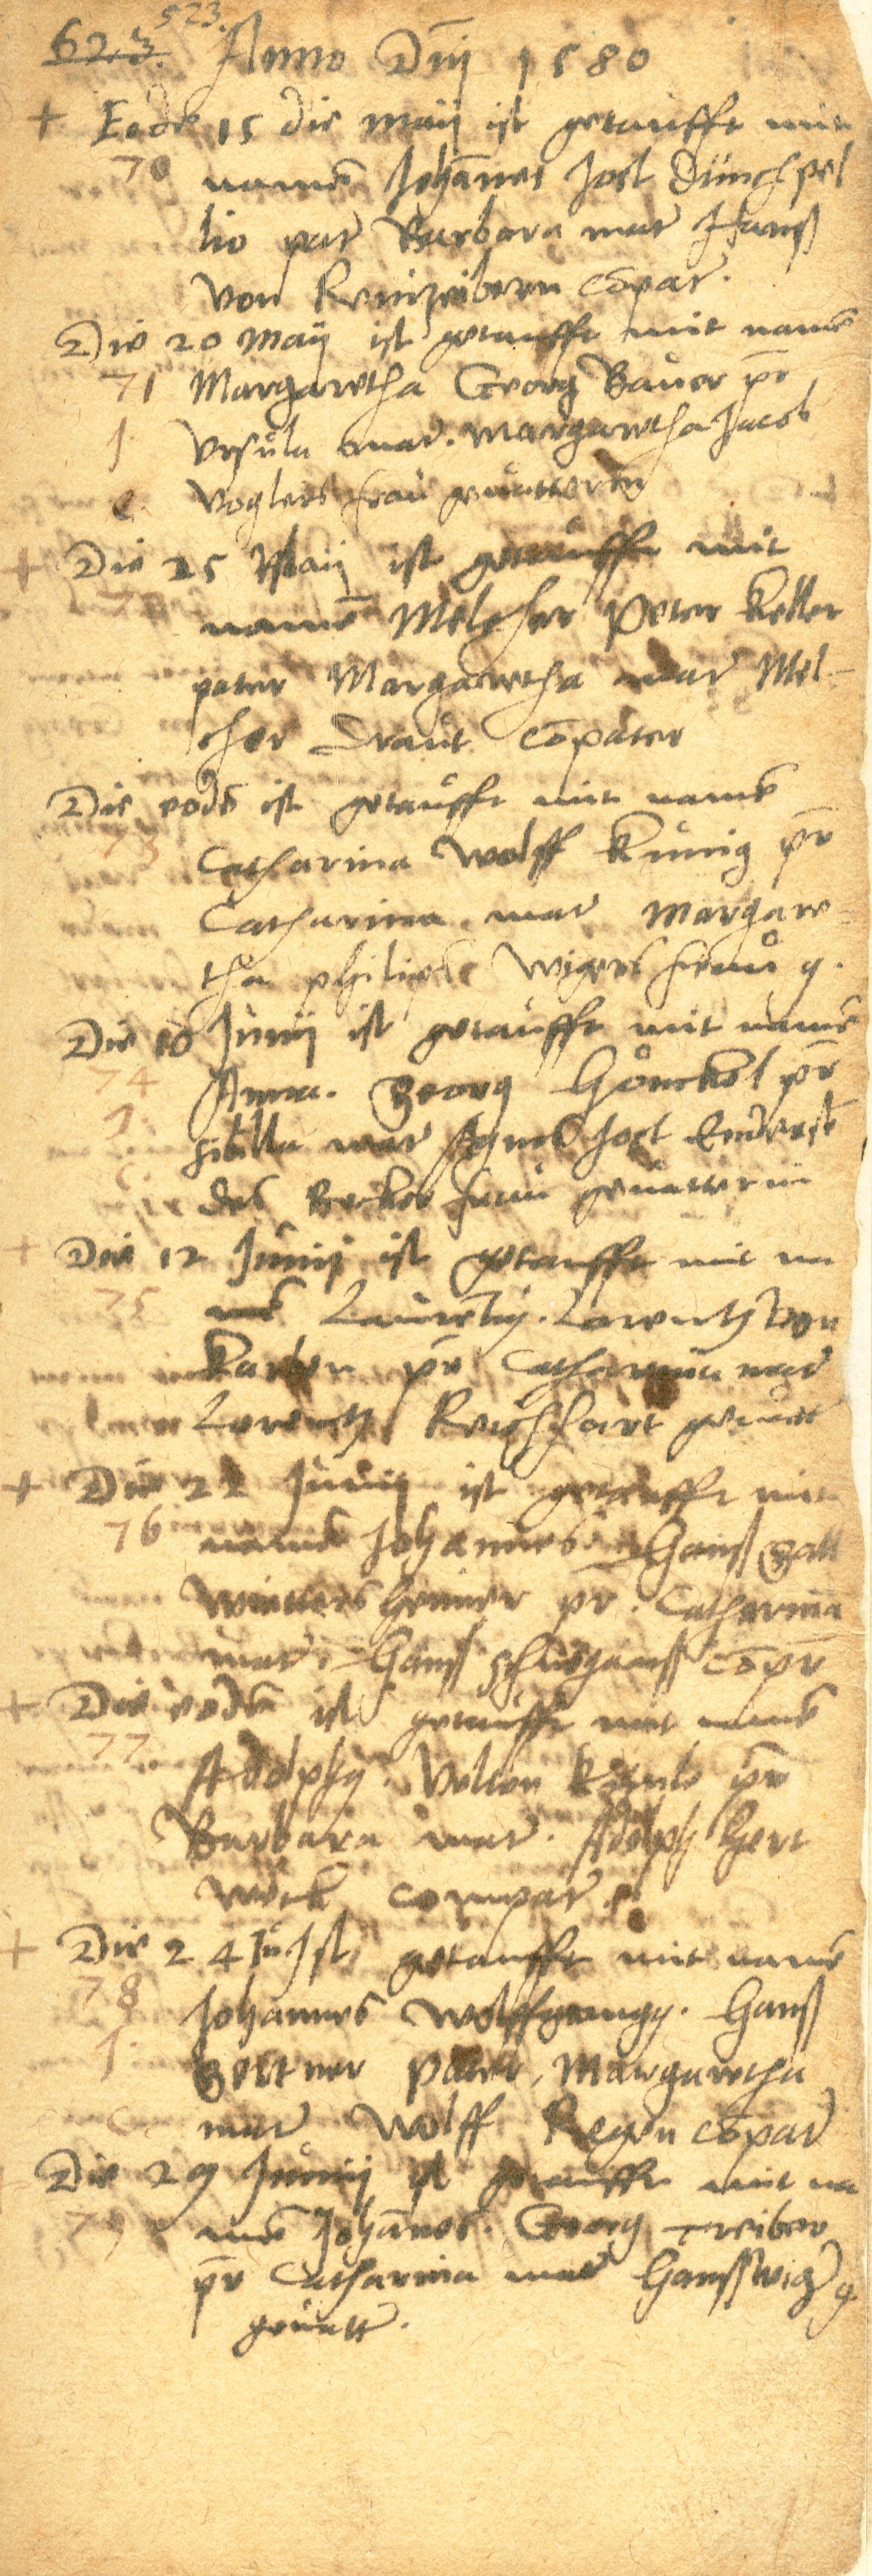 623. 523. Anno Dni 1580
+ Eode 15 die Maij ist getaufft mit
70 namē Johānes Jost Dünch pel
lio pat Barbara mat Hanß
von Reinzabern Cōpat.
Die 20 Maij ist getaufft mit namē
71 Margaretha Georg Bauer pr
J. Vrsula mat. Margaretha Jacob
C. Voglers frau geuatterin
+ Die 25 Maij ist getaufft mit
72 namē Melcher Peter Keller
pater Margaretha mat Mel-
cher Draut Cōpater
Die eodē ist getaufft mit namē
73 Catharina Wolff Künig pr
Catharina mat Margare-
tha philips Wigers frau g.
Die 10 Junij ist getaufft mit namē
74 Anna. Georg Hönckel pr
J. Sibilla mat Agnes Jost
C. des Becker frau geuatterin
+ Die 12 Junij ist getaufft mit na
75 mē Laurētij. Lorentz von
pr Catharina mat
Lorentz Reichhart geuatt
+ Die 22 Junij ist getaufft mit
76 namē Johannes Hanß Gall
Wintersheimer pr. Catharina
mat. Hanß cōpr
+ Die eodē ist getaufft mit namē
77 Adolphg. Velten pr
Barbara mat. Adolph Hert
weck compat
+ Die 24 Ju Ist getaufft mit namē
78 Johannes Wolffgangg. Hanß
J. Gertner pater, Margaretha
mat Wolff Regen cōpat
Die 29 Junij ist getaufft mit na
79 mē Johānes. Georg Treiber
pr Catharina mat Hanß
geuatt.